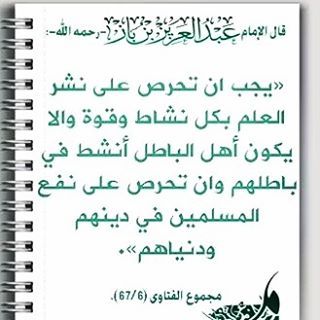 قال الإمام عبد العزيز بن باز -رحمه الله-:
«يجب ان تحرص على نشر
العلم بكل نشاط وقوة والا
يكون أهل الباطل أنشط في
باطلهم وان تحرص على نفع
المسلمين في دينهم
ودنياهم».
مجموع الفتاوى (67/6).